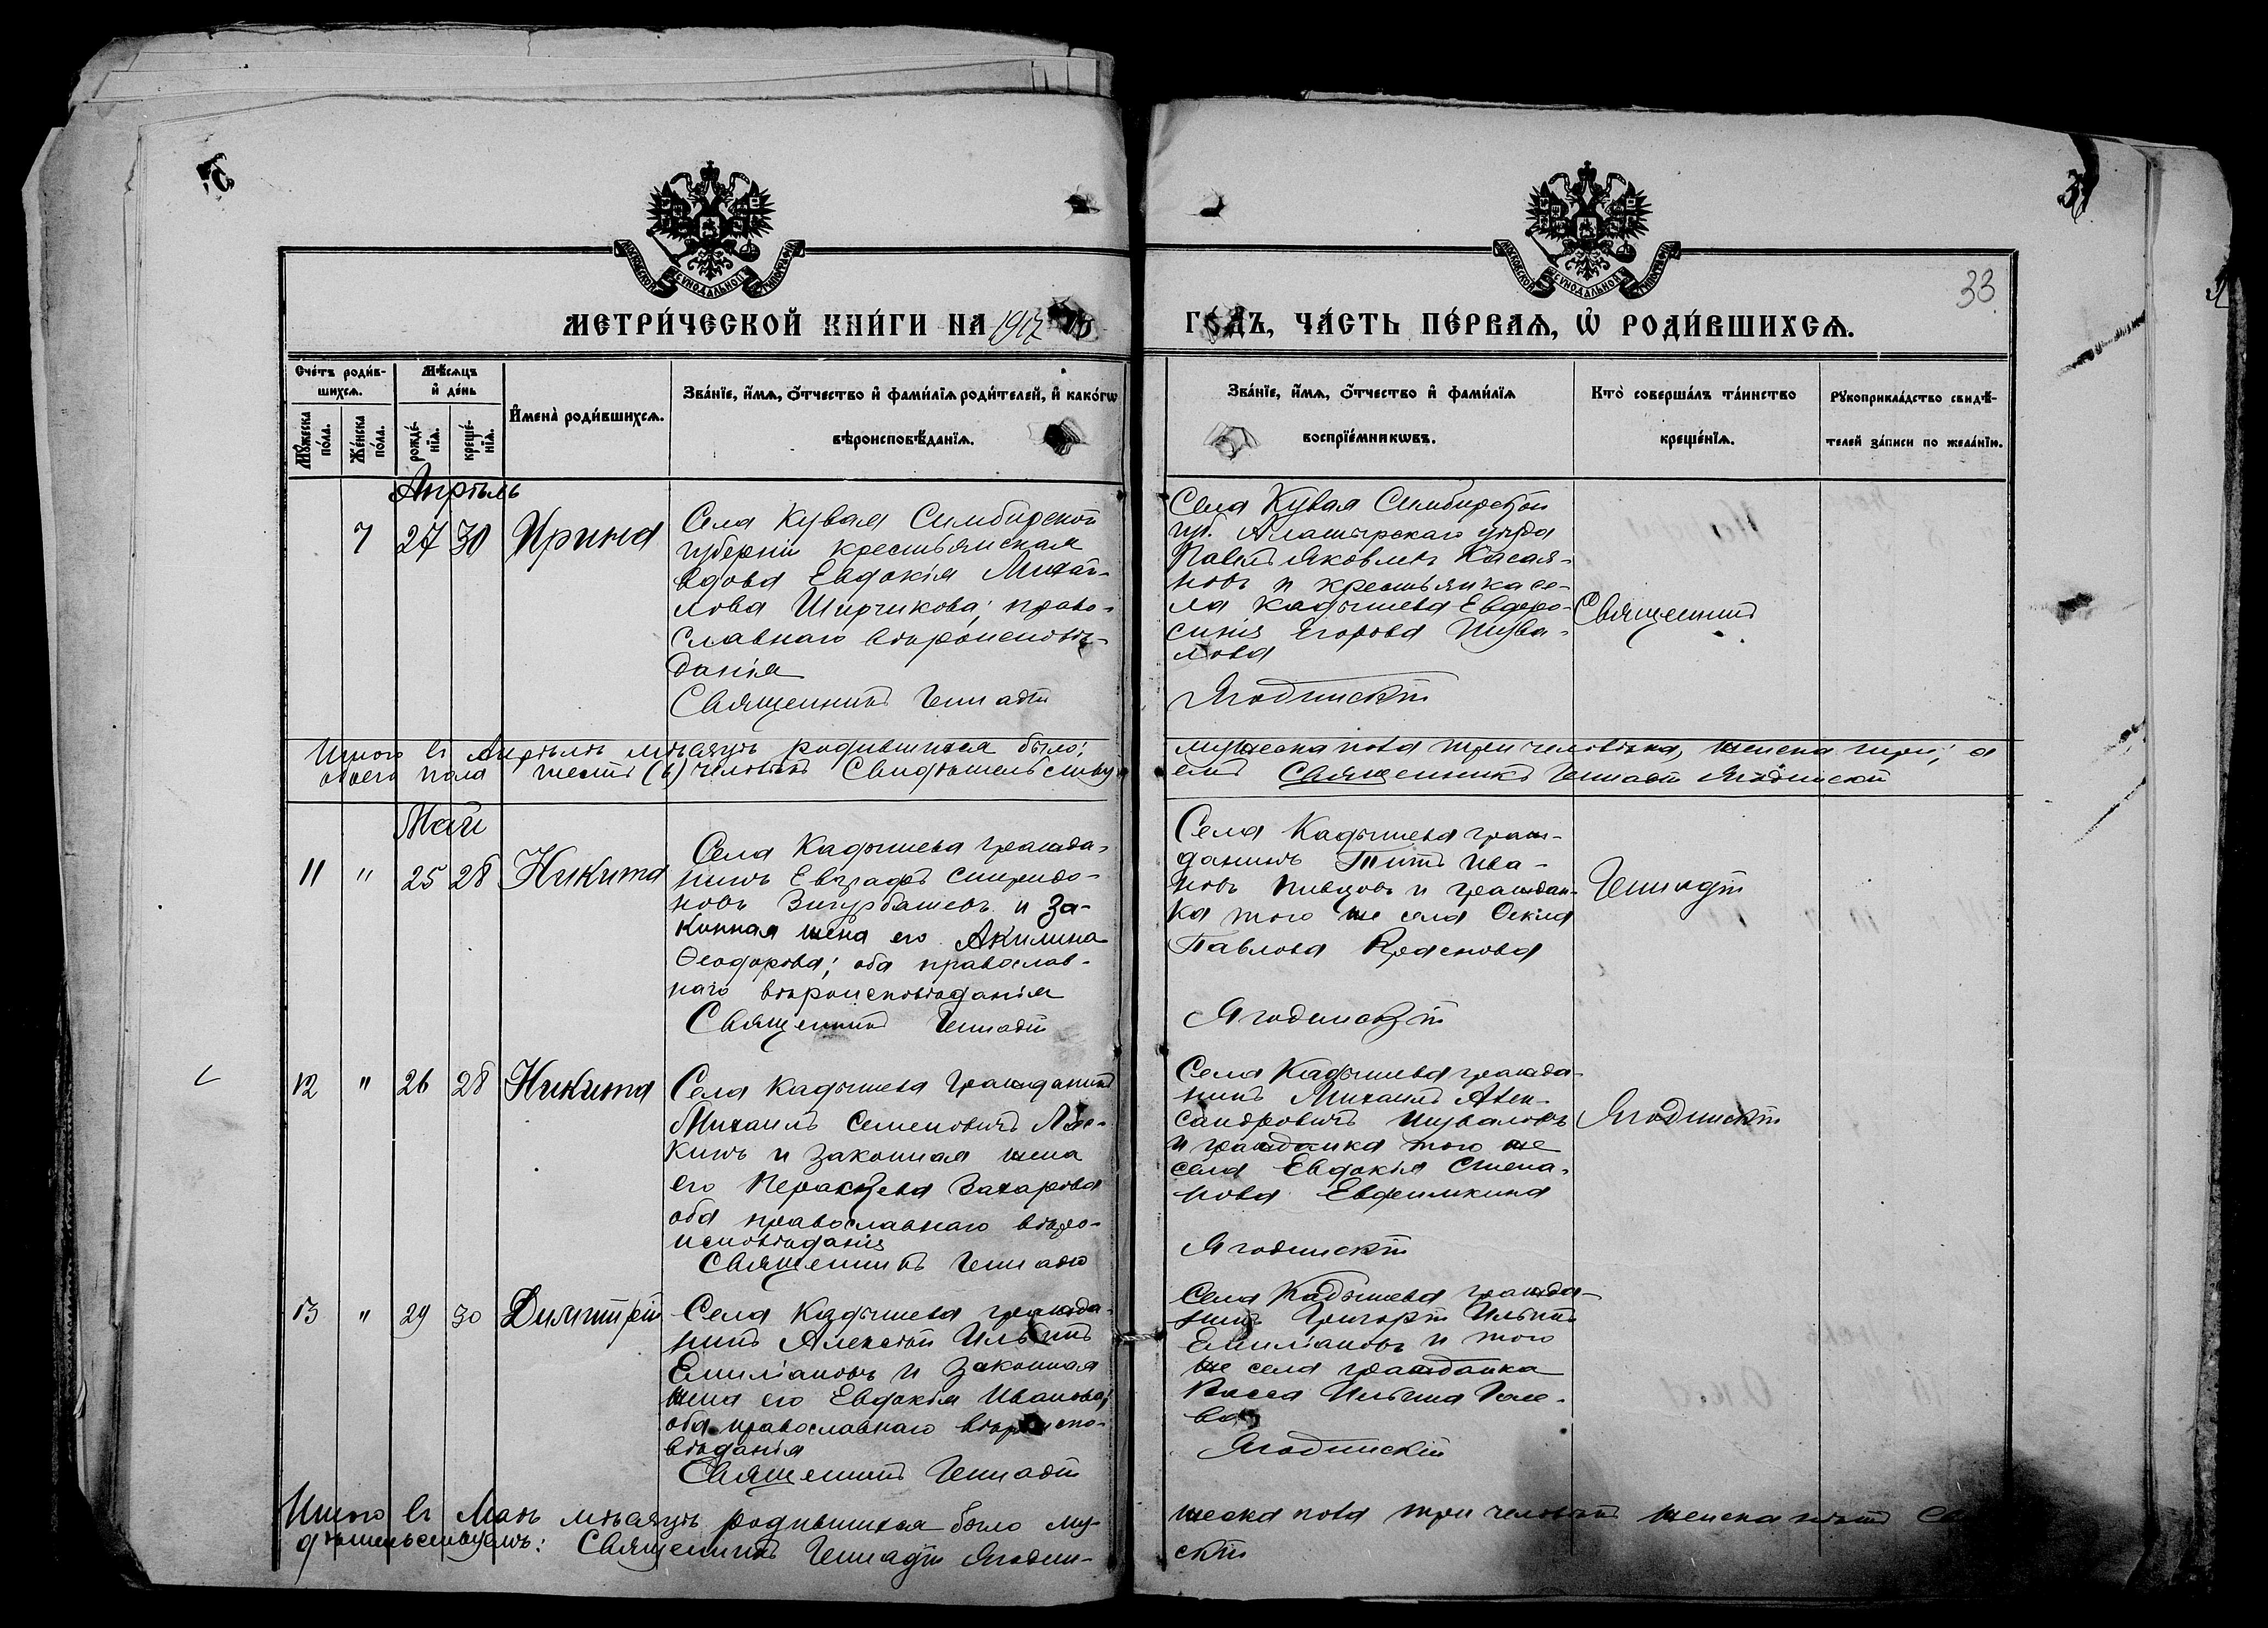 33
МЕТРИ́ЧЕСКОЙ КНИ́ГИ НА 1917
ГО́ДЪ, ЧА́СТЬ ПЕ́РВАѦ, Ѡ҆ РОДИ́ВШИХСѦ.
Сче́тъ роди́в-
шихсѧ.
Мѣ́сѧцъ
и҆ де́нь
Мꙋ́жеска по́ла.
Же́нска по́ла.
рожде́-
нїѧ.
креще́-
нїѧ.
И҆мена̀ роди́вшихсѧ.
Зва́нїе, и҆́мѧ, ѻ҆́тчество и҆ фами́лїѧ роди́телей, и҆ како́гѡ
вѣроисповѣ́данїѧ.
Зва́нїе, и҆́мѧ, ѻ҆́тчество и҆ фами́лїѧ
воспрїе́мникѡвъ.
Кто̀ соверша́лъ та́инство
креще́нїѧ.
Рꙋкоприкла́дство свидѣ́-
телей за́писи по жела́нїю.
Апрѣль
7 27 30 Ирина
Села Кувая Симбирской
губерніи крестьянская
вдова Евдокія Михай-
лова Ширчикова; право-
славнаго вѣроисповѣ-
данія
Священникъ Геннадій
Села Кувая Симбирской
губ. Алатырскаго уѣзда
Павелъ Яковлевъ Касая-
новъ и крестьянка се-
ла Кадышева Евфро-
синія Егорова Шува-
лова
Ягодинскій
Священникъ
Итого въ Апрѣлѣ мѣсяцѣ родившихся было:
мужеска пола три человѣка, женска три; а
обоего пола шесть (6) человѣкъ Свидѣтельству
емъ Священникъ Геннадій Ягодинскій
Май
11 " 25 28 Никита
Села Кадышева гражда-
нинъ Евграфъ Спиридо-
новъ и за-
конная жена его Акилина
Ѳеодорова; оба православ-
наго вѣроисповѣданія
Священникъ Геннадій
Села Кадышева граж-
данинъ Титъ Ива-
новъ Пивцовъ и граждан-
ка того же села Ѳекла
Павлова Краснова
Ягодинскій
Геннадій
12 " 26 28 Никита
Села Кадышева гражданинъ
Михаилъ Семеновичъ
кинъ и законная жена
его Параскева Захарова
оба православнаго вѣро-
исповѣданія
Священникъ Геннадій
Села Кадышева гражда-
нинъ Михаилъ Алек-
сандровичъ Шуваловъ
и гражданка того же
села Евдокія Степа-
нова Евфимкина
Ягодинскій
Ягодинскій
13 " 29 30 Димитрій
Села Кадышева гражда-
нинъ Алексѣй Ильинъ
Емиліановъ и законная
жена его Евдокія Иванова;
оба православнаго вѣроиспо-
вѣданія
Священникъ Геннадій
Села Кадышева гражда-
нинъ Григорій Ильинъ
Емиліановъ и того
же села гражданка
Васса Ильина
Ягодинскій
Итого въ Маѣ мѣсяцѣ родившихся было му-
жеска пола три человѣка женска
дѣтельствуемъ: Священникъ Геннадій Ягодин-
скій